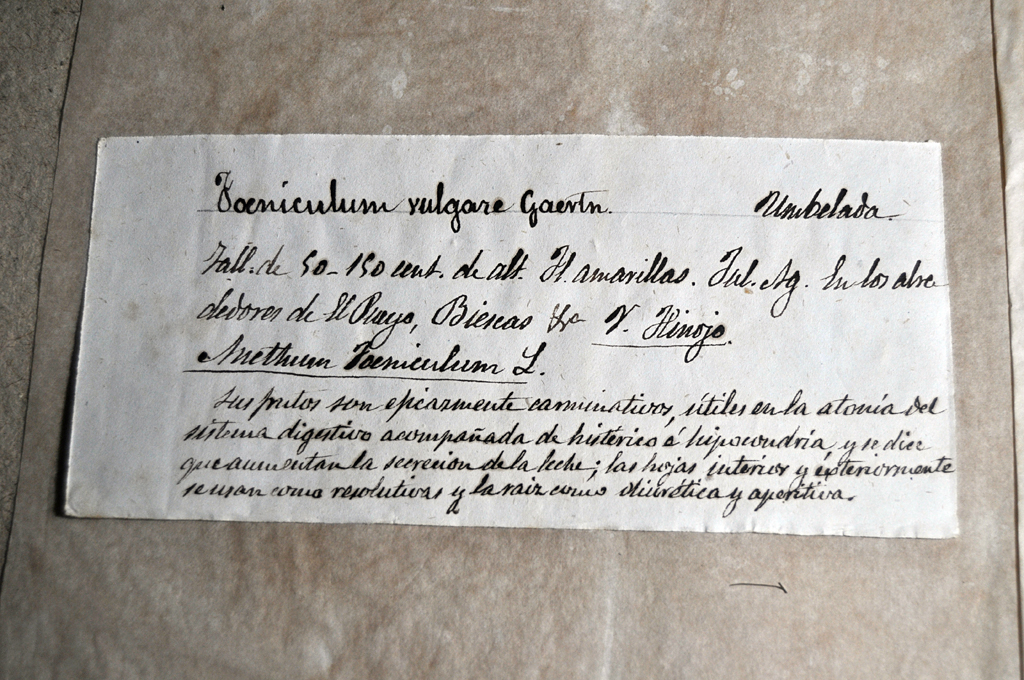 Foeniculum vulgare Gaertn. Umbelada.
Tall. de 50-150 cent. de alt. Fl amarillas. Jul. Ag. En los alre
dedores de El Pueyo, Biescas &a V. Hinojo.
Anethum Foeniculum L.
Sus frutos son eficazmente carminativos, útiles en la atonía del
sistema digestivo acompañada de histérico ó hipocondría y se dice
que aumentan la secrecion de la leche; las hojas interior y esteriormente
se usan como resolutivas y la raiz como diurética y aperitiva.